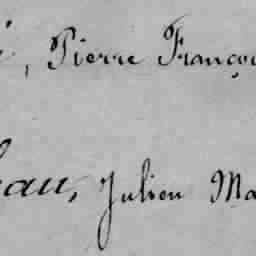 , Pierre Franço
eau, Julien Ma